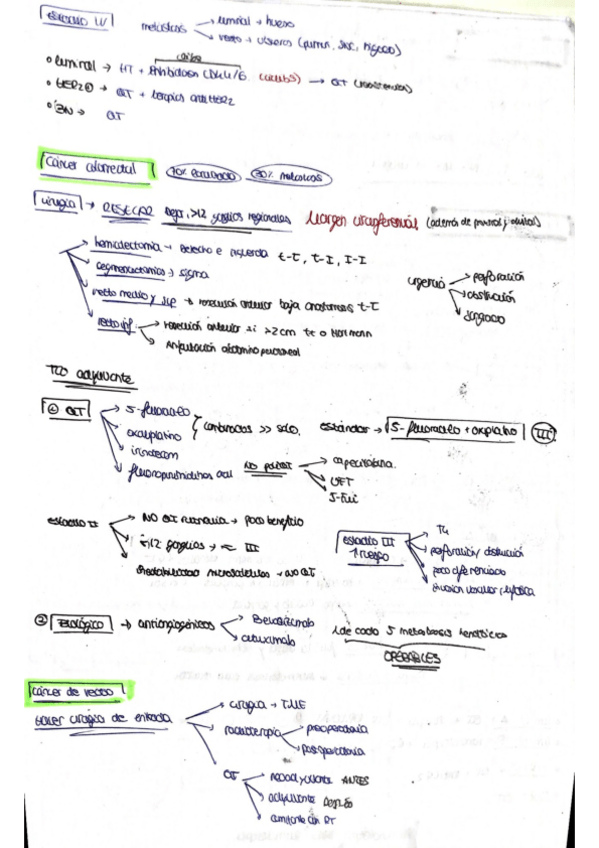 ESTADIO IV metástasis → luminal → hueso
→ resto → vísceras (pulmón, SNC, hígado)
• Luminal → HT + inhibidores CDK4/6 → QT
• HER2⊕ → QT + terapia antiHER2
• 3N → QT
Cáncer colorrectal
cirugía → RESECAR >12 ganglios regionales Margen circunferencial (además de proximal y distal)
→ hemicolectomía → derecha e izquierda t-t, t-I, I-I
→ → sigma
→ recto medio y sup → resección anterior baja anastomosis t-t
→ recto inf → resección anterior si >2cm
→ Amputación abdomino perineal
urgencia → perforación
→ obstrucción
→ sangrado
TTO adyuvante
① QT → 5-fluoracilo
→ oxaliplatino
→ irinotecan
→ fluoropirimidinas oral
combinados >> solo. estándar → 5-fluoracilo + oxaplatino III
→ capecitabina
→ UFT
Estadio II → NO QT rutinaria → poco beneficio
→ <12 ganglios → ≈ III
→ inestabilidad microsatélites → NO QT
estadio III ↑ riesgo → T4
→ perforación / obstrucción
→ poco diferenciado
→ invasión vascular / linfática
② Biológico → antiangiogénicos → Bevacizumab
→ cetuximab
1 de cada 5 metástasis hepáticas
OPERABLES
Cáncer de recto
hacer cirugía de entrada
→ cirugía → TME
→ radioterapia → preoperatoria
→ postoperatoria
→ QT → neoadyuvante ANTES
→ adyuvante DESPUÉS
→ concomitante con RT